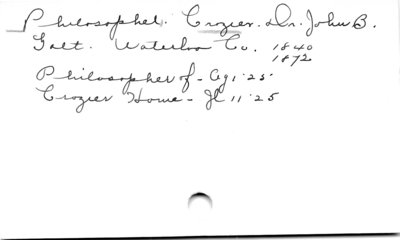 Philosopher. Crozier. Dr. John B.
Galt. Waterloo Co. 1840
1872
Philosopher of - Ag 1 '25
Crozier Home - Jl 11 '25